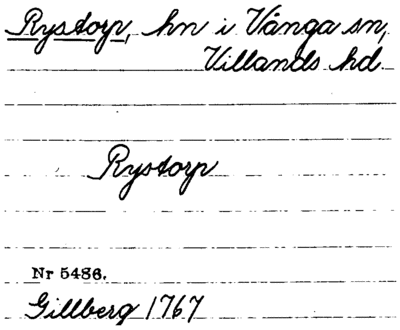 Rystorp, hn i Vånga sn,
Villands hd
Rystorp
Nr 5486.
Gillberg 1767